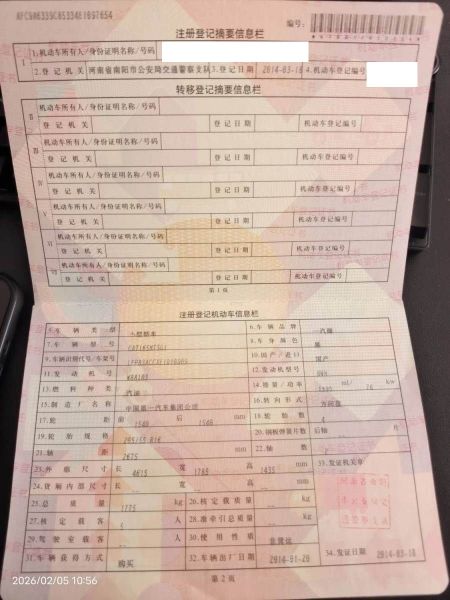 注册登记摘要信息栏
编号:
I 1.机动车所有人/身份证明名称/号码
2.登记机关 河南省南阳市公安局交通警察支队 3.登记日期 2014-03-18 4.机动车登记编号
转移登记摘要信息栏
II 机动车所有人/身份证明名称/号码
登记机关 登记日期 机动车登记编号
III 机动车所有人/身份证明名称/号码
登记机关 登记日期 机动车登记编号
IV 机动车所有人/身份证明名称/号码
登记机关 登记日期 机动车登记编号
V 机动车所有人/身份证明名称/号码
登记机关 登记日期 机动车登记编号
VI 机动车所有人/身份证明名称/号码
登记机关 登记日期 机动车登记编号
VII 机动车所有人/身份证明名称/号码
登记机关 登记日期 机动车登记编号
第1页
注册登记机动车信息栏
5.车辆类型 小型轿车 6.车辆品牌 一汽牌
7.车辆型号 8.车身颜色
9.车辆识别代号/车架号 10.国产/进口 国产
11.发动机号 12.发动机型号
13.燃料种类 汽油 14.排量/功率 ml/ kw
15.制造厂名称 中国第一汽车集团公司 16.转向形式 方向盘
17.轮距 前 1540 后 1546 mm 18.轮胎数 4
19.轮胎规格 205/55 R16 20.钢板弹簧片数 后轴 片
21.轴距 2675 mm 22.轴数 2
23.外廓尺寸 长 4615 宽 1785 高 1435 mm 33.发证机关章
24.货厢内部尺寸 长 宽 高 mm
25.总质量 1775 kg 26.核定载质量 kg
27.核定载客 5 人 28.准牵引总质量 kg
29.驾驶室载客 人 30.使用性质 非营运
31.车辆获得方式 购买 32.车辆出厂日期 2014-01-20 34.发证日期 2014-03-18
第2页
2026/02/05 10:56